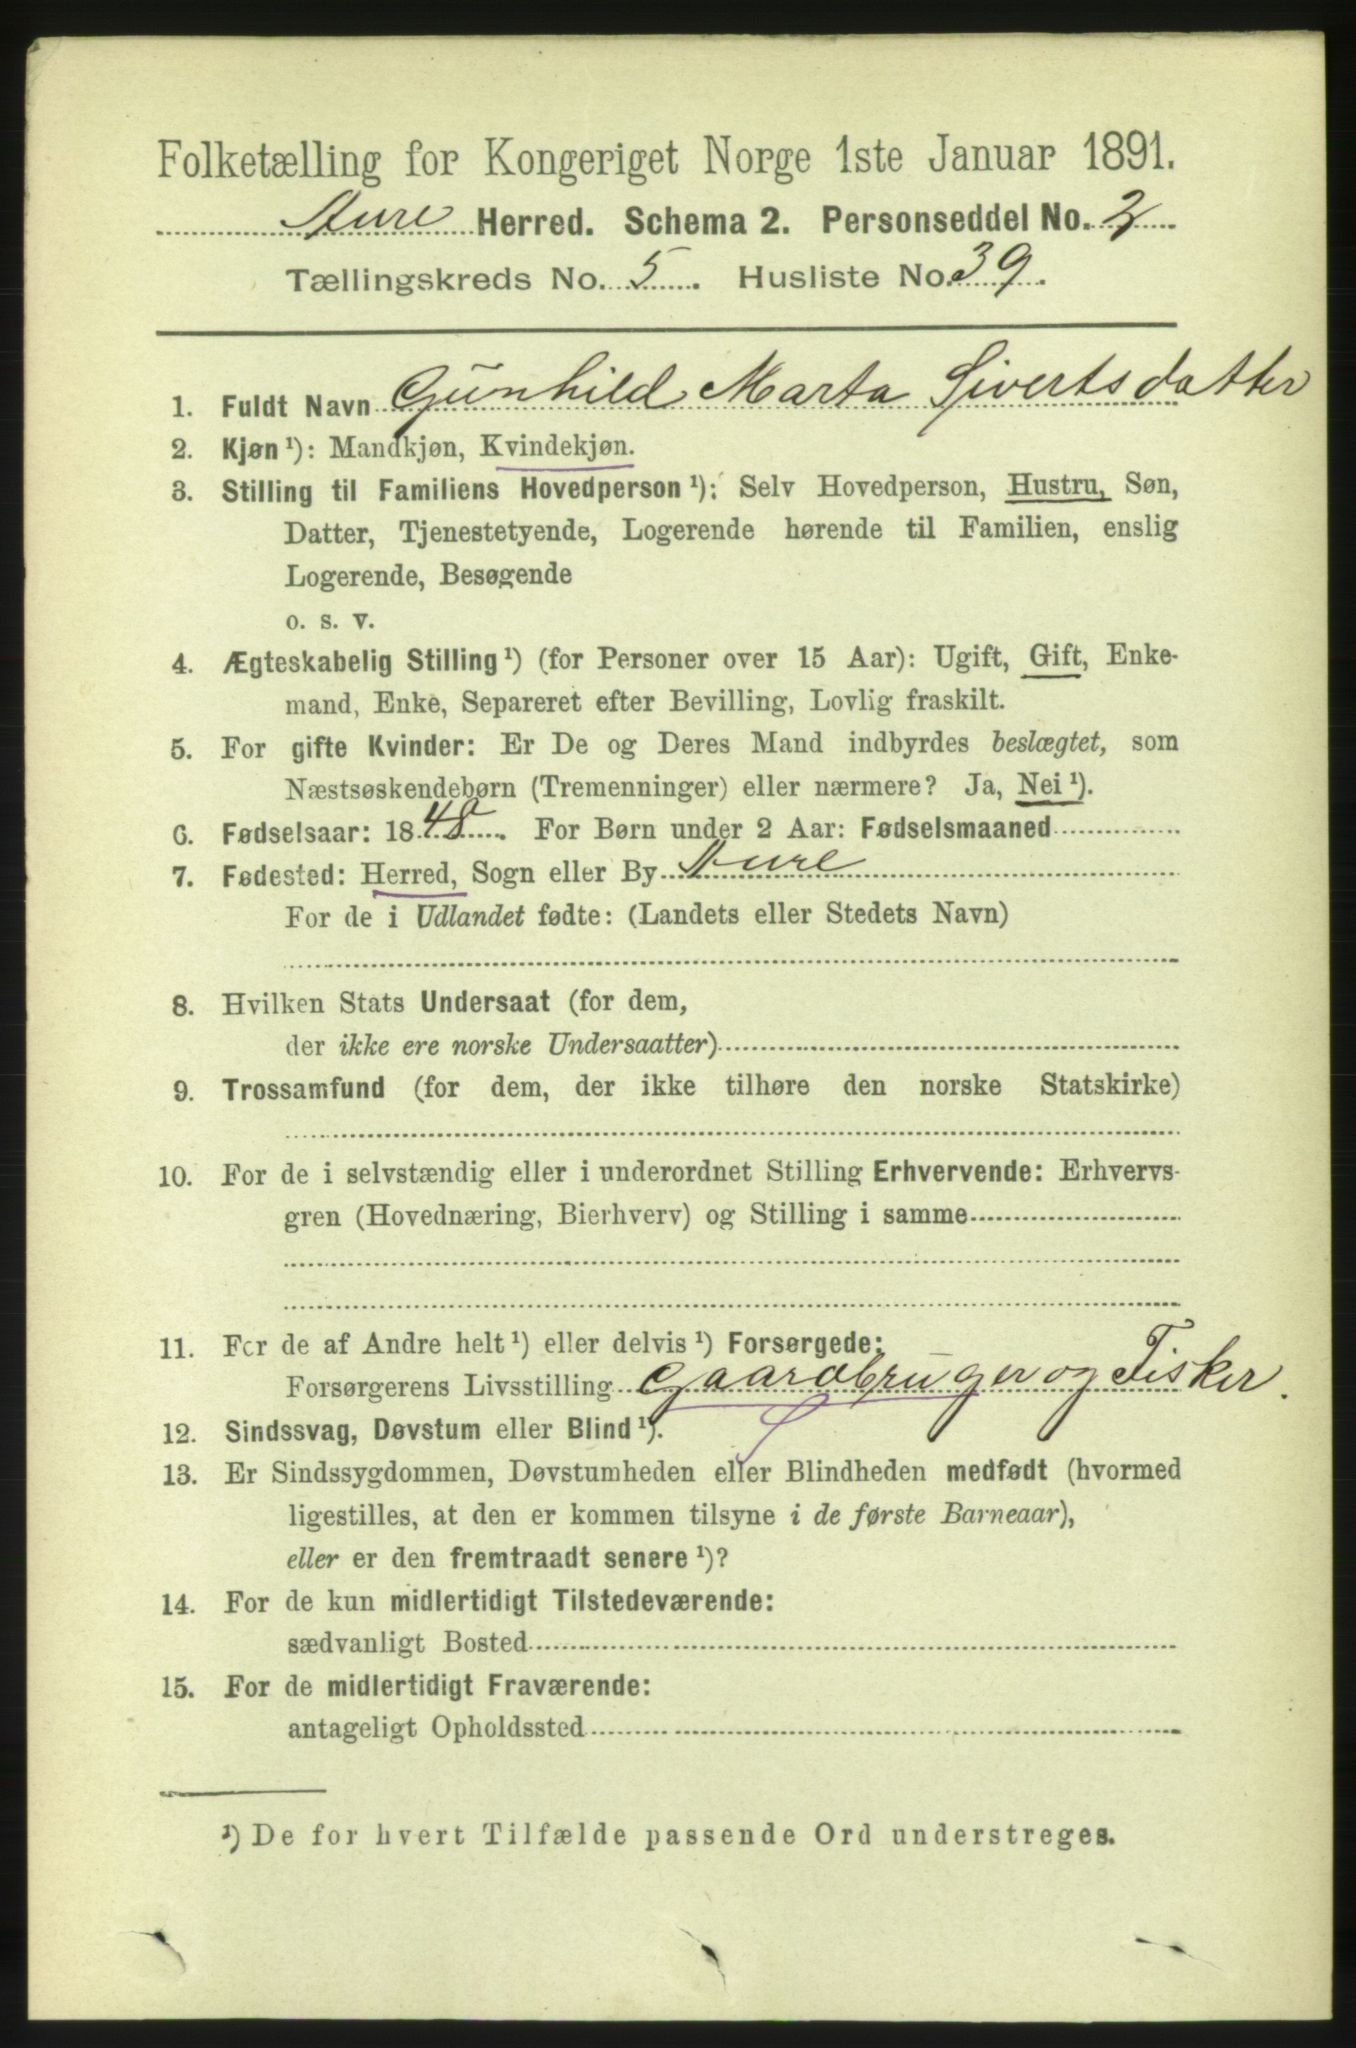 Folketælling for Kongeriget Norge 1ste Januar 1891.
Aure Herred. Schema 2. Personseddel No. 2
Tællingskreds No. 5. Husliste No. 39.
1. Fuldt Navn Gunhild Marta Sivertsdatter
2. Kjøn ¹): Mandkjøn, Kvindekjøn.
3. Stilling til Familiens Hovedperson ¹): Selv Hovedperson, Hustru, Søn,
Datter, Tjenestetyende, Logerende hørende til Familien, enslig
Logerende, Besøgende
o. s. v.
4. Ægteskabelig Stilling ¹) (for Personer over 15 Aar): Ugift, Gift, Enke-
mand, Enke, Separeret efter Bevilling, Lovlig fraskilt.
5. For gifte Kvinder: Er De og Deres Mand indbyrdes beslægtet, som
Næstsøskendebørn (Tremenninger) eller nærmere? Ja, Nei ¹).
6. Fødselsaar: 1848. For Børn under 2 Aar: Fødselsmaaned
7. Fødested: Herred, Sogn eller By Aure
For de i Udlandet fødte: (Landets eller Stedets Navn)
8. Hvilken Stats Undersaat (for dem,
der ikke ere norske Undersaatter)
9. Trossamfund (for dem, der ikke tilhøre den norske Statskirke)
10. For de i selvstændig eller i underordnet Stilling Erhvervende: Erhvervs-
gren (Hovednæring, Bierhverv) og Stilling i samme
11. For de af Andre helt ¹) eller delvis ¹) Forsørgede:
Forsørgerens Livsstilling Gaardbruger og Fisker.
12. Sindssvag, Døvstum eller Blind ¹).
13. Er Sindssygdommen, Døvstumheden eller Blindheden medfødt (hvormed
ligestilles, at den er kommen tilsyne i de første Barneaar),
eller er den fremtraadt senere ¹)?
14. For de kun midlertidigt Tilstedeværende:
sædvanligt Bosted
15. For de midlertidigt Fraværende:
antageligt Opholdssted
¹) De for hvert Tilfælde passende Ord understreges.